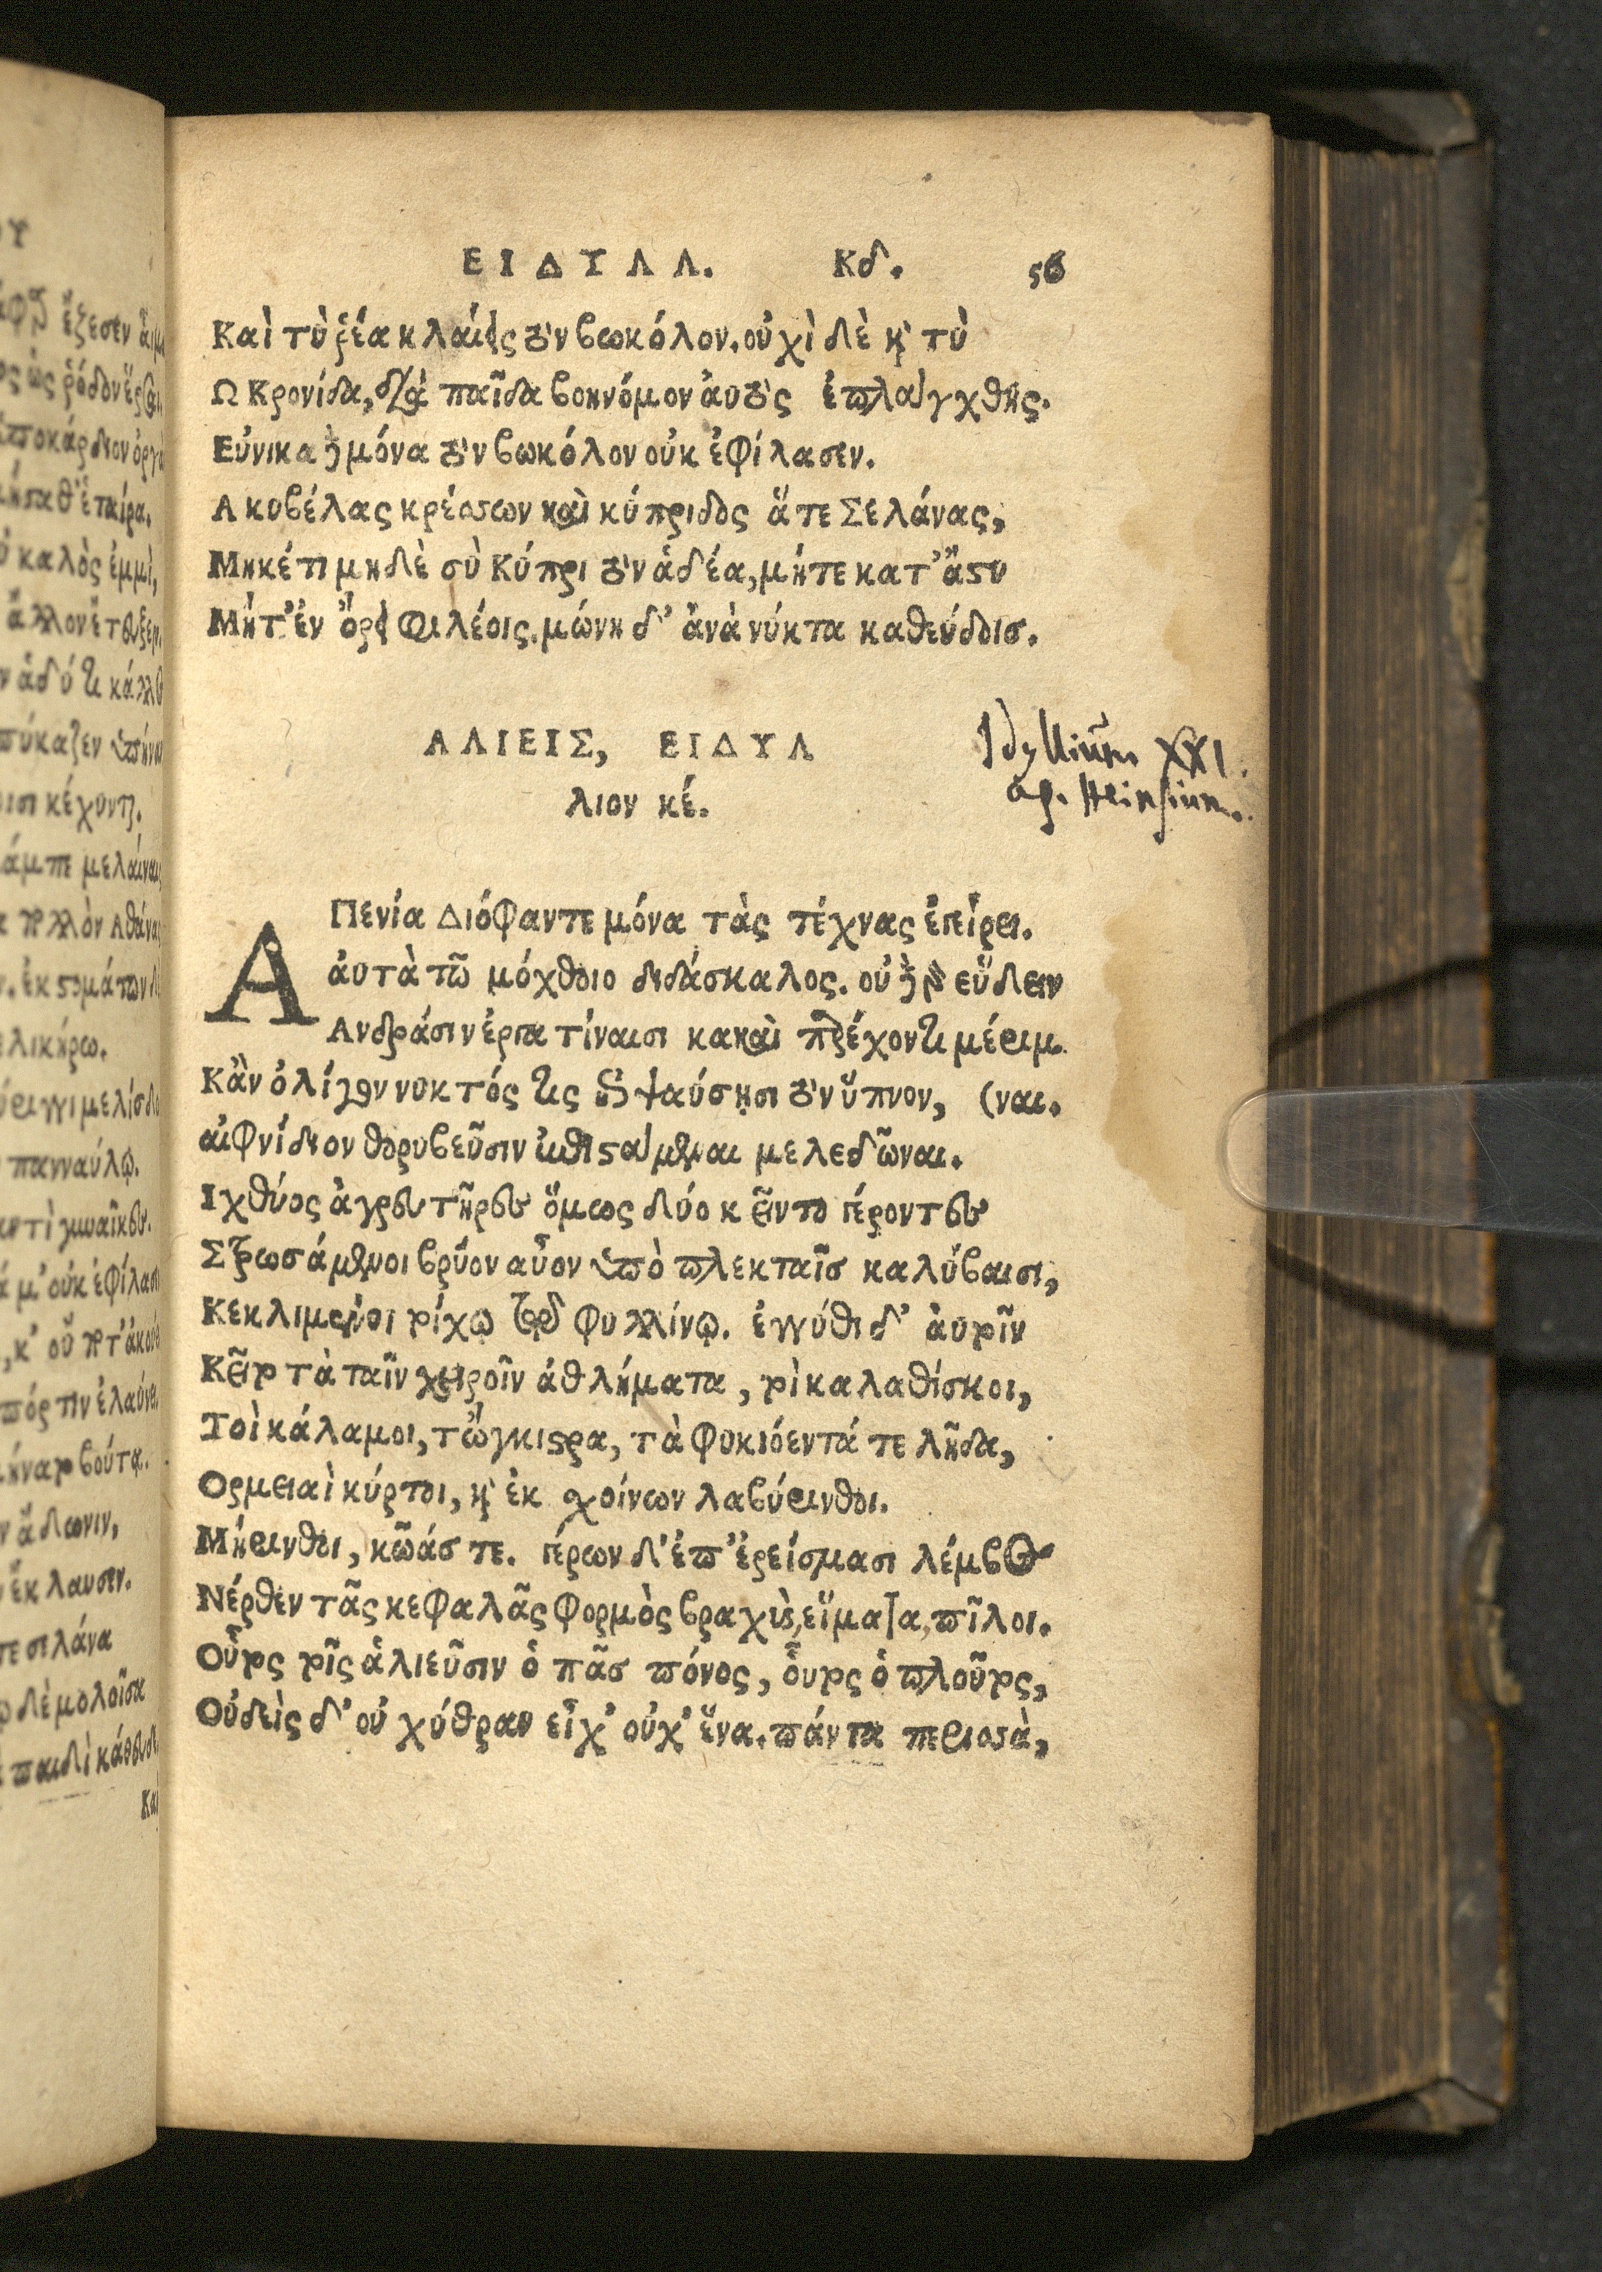 ΕΙΔΥΛΛ. Κδ. 56
Καὶ τὺ ῥέα κλαίεις τὸν βωκόλον. οὐχὶ δὲ κὶ τὺ
Ω Κρονίδα, διὰ παῖδα βοηνόμον ἀυτὸς ἐπλαίγχθης.
Εὐνικα δὲ μόνα τὸν βωκόλον οὐκ ἐφίλασεν.
Α κυβέλας κρέσσων καὶ κύπριδος ἅτε Σελάνας,
Μηκέτι μηδὲ σὺ Κύπρι τὸν ἁδέα, μήτε κατ' ἄστυ
Μήτ' ἐν ὄρει φιλέοις. μώνη δ' ἀνὰ νύκτα καθεύδοισ.
ΑΛΙΕΙΣ, ΕΙΔΥΛ
λιον κέ.
Idyllium XXI.
ap. Heinsium.
Α Πενία Διόφαντε μόνα τὰς τέχνας ἐγείρει.
ἀυτὰ τῶ μόχθοιο διδάσκαλος. οὐδὲ γὰρ εὕδειν
Ανδράσιν ἐργατίναισι κακαὶ παρέχοντι μέριμ
Κἂν ὀλίγον νυκτός τις ἐπιψαύσησι τὸν ὕπνον, (ναι.
αἰφνίδιον θορυβεῦσιν ἐφιστάμεναι μελεδῶναι.
Ιχθύος ἀγρευτῆρες ὅμως δύο κεῖντο γέροντες
Στρωσάμενοι βρύον αὖον ὑπὸ πλεκταῖσ καλύβαισι,
Κεκλιμένοι τοίχω τῷ φυλλίνῳ. ἐγγύθι δ' ἀυτοῖν
Κεῖτο τὰ ταῖν χειροῖν ἀθλήματα, τοὶ καλαθίσκοι,
Τοὶ κάλαμοι, τὤγκιστρα, τὰ φυκιόεντά τε λῆδα,
Ορμειαὶ κύρτοι, κὶ ἐκ σχοίνων λαβύρινθοι.
Μήρινθοι, κῶάς τε. γέρων δ' ἐπ' ἐρείσμασι λέμβος
Νέρθεν τᾶς κεφαλᾶς φορμὸς βραχὺς, εἵματα, πῖλοι.
Οὗτος τοῖς ἁλιεῦσιν ὁ πᾶσ πόνος, οὗτος ὁ πλοῦτος,
Οὐδεὶς δ' οὐ χύθραν εἶχ' οὐχ' ἕνα. πάντα περισσὰ,